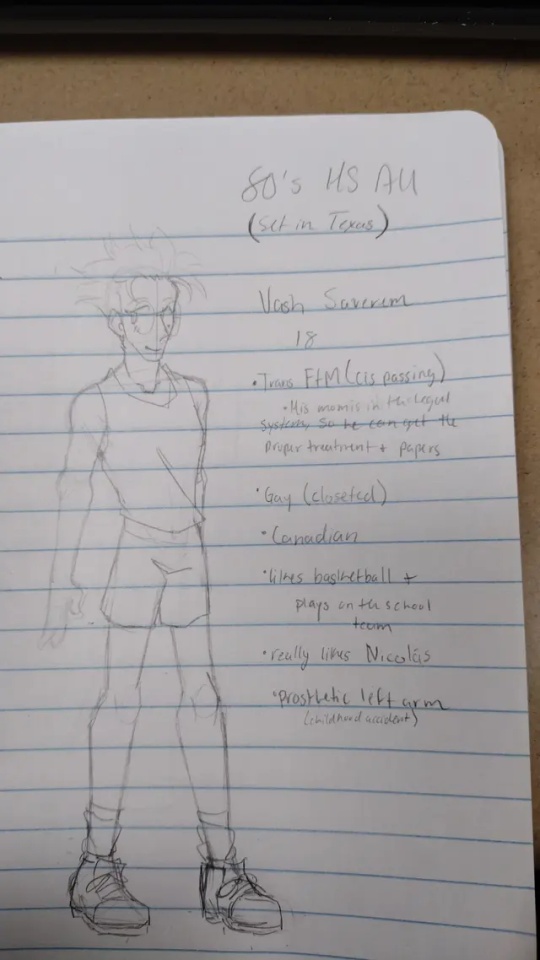 80's HS AU
(Set in Texas)
Vash Saverem
18
• Trans FtM (cis passing)
• His mom is in the legal
system, so he can get the
proper treatment + papers
• Gay (closeted)
• Canadian
• likes basketball +
plays on the school
team
• really likes Nicolás
• prosthetic left arm
(childhood accident)